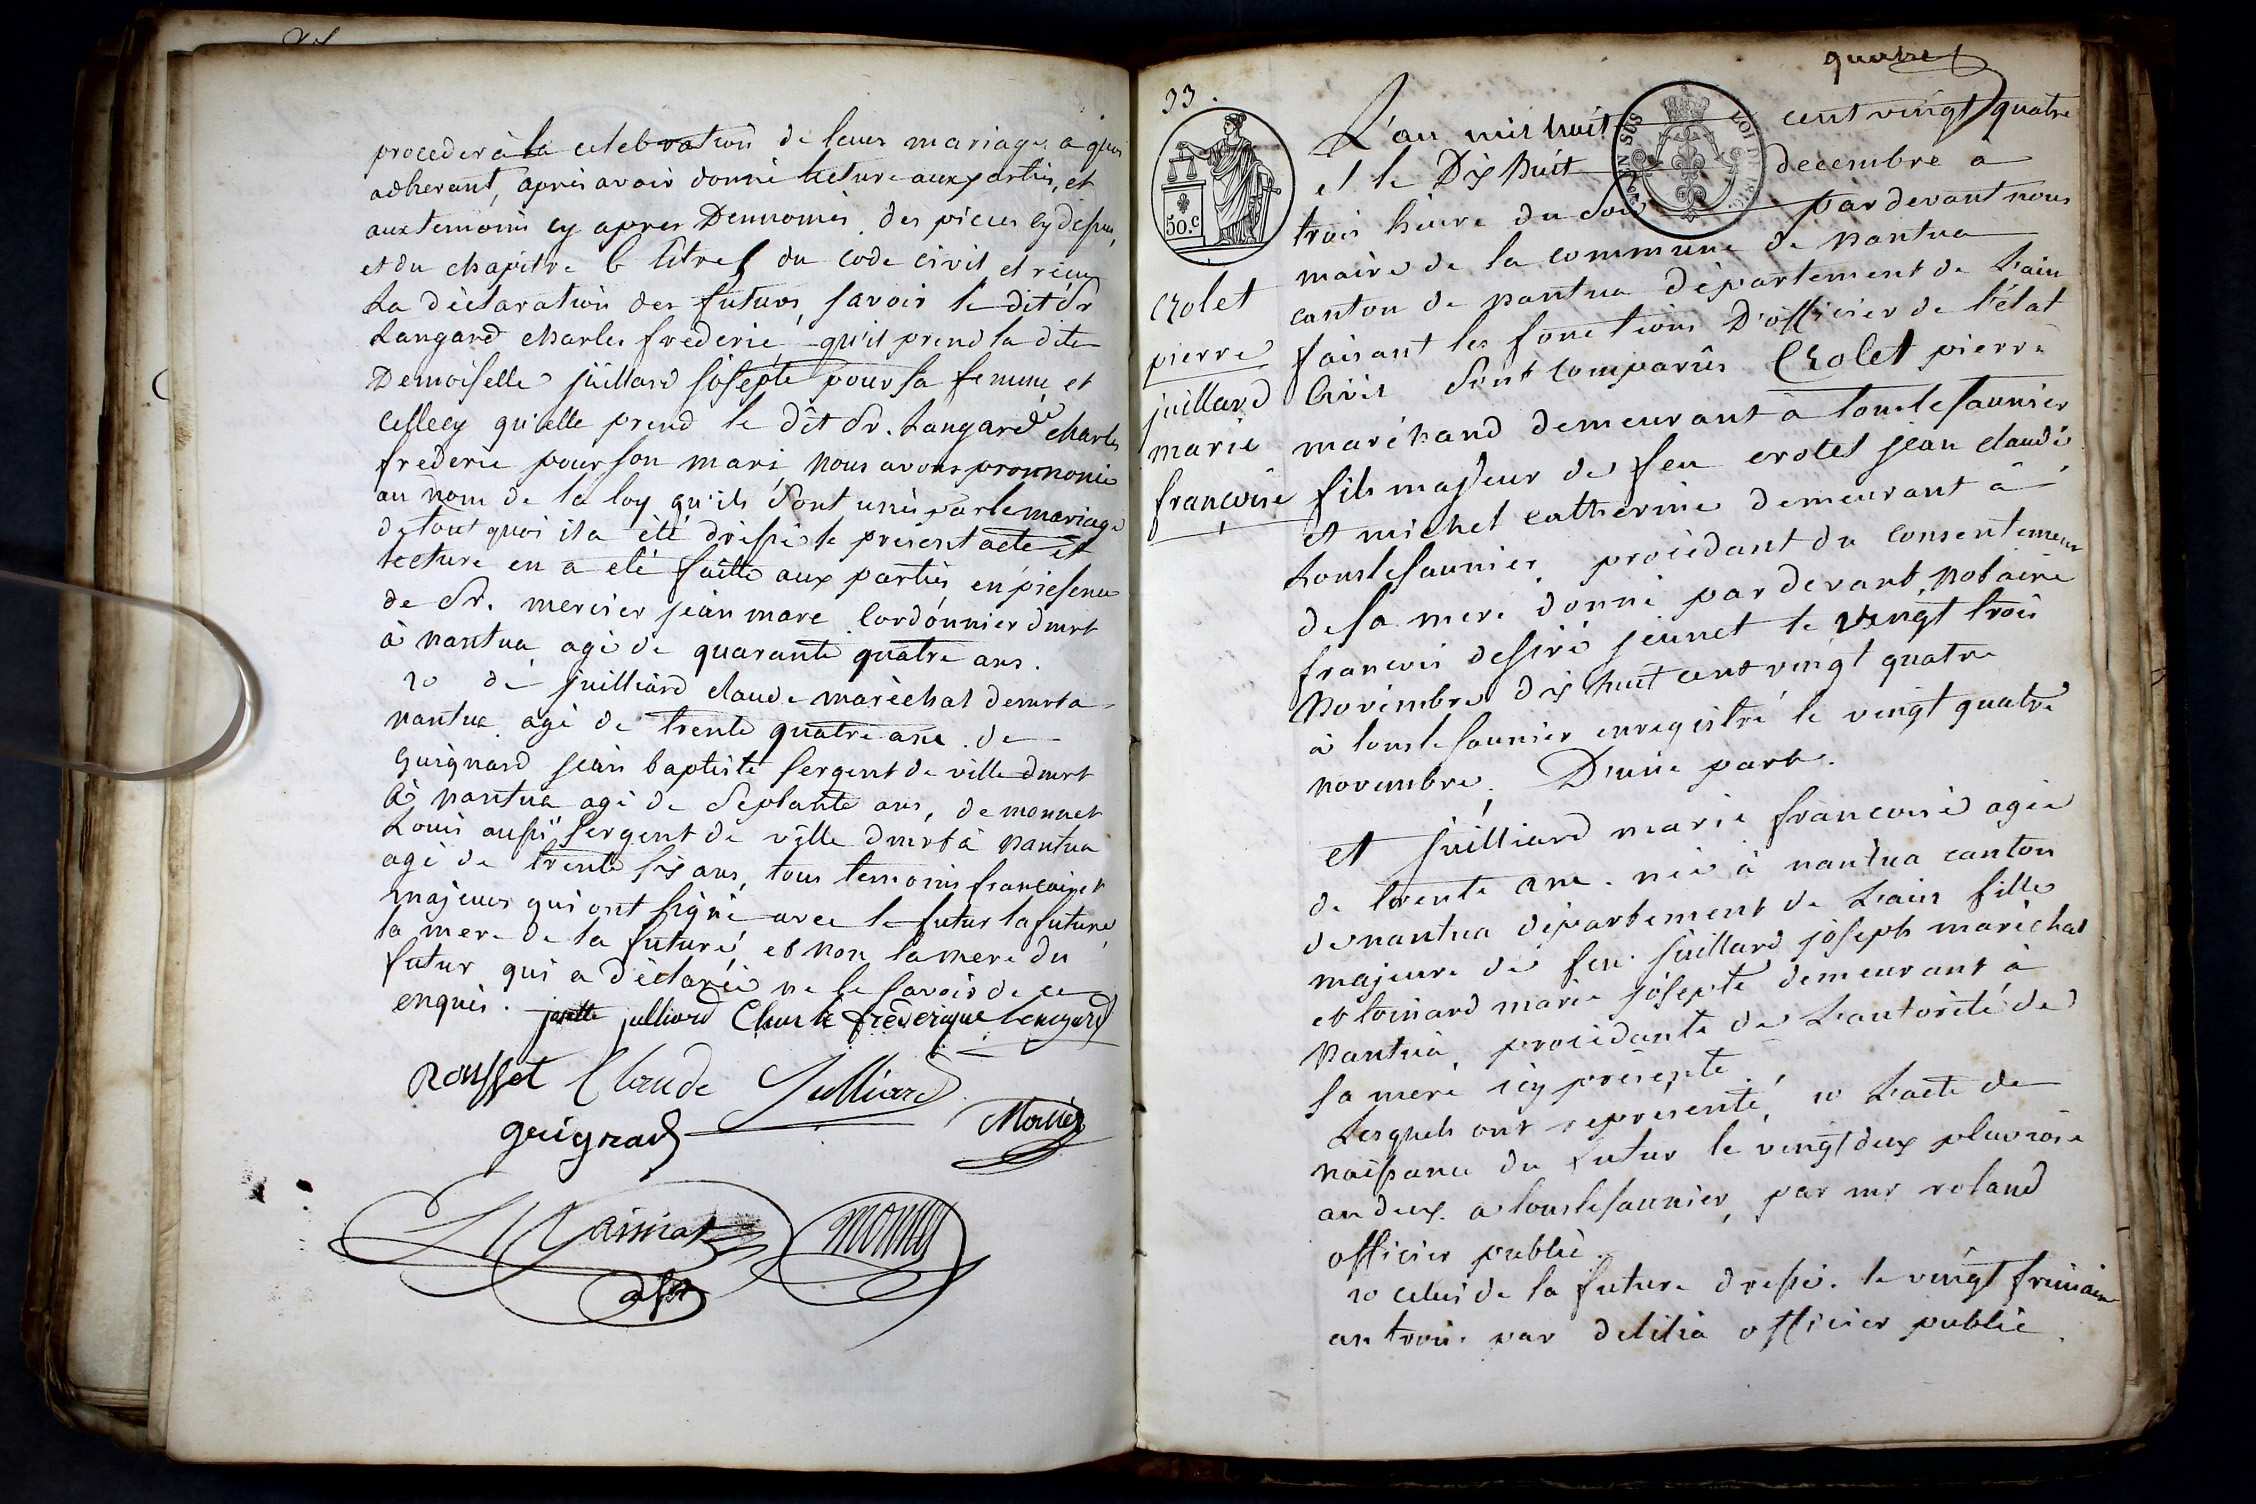 proceder à la celebration de leurs mariage a quoi
adherant, après avoir donné lecture aux parties, et
aux temoins cy apres Dennomés des pièces cy dessus,
et du chapitre 6 titre du code civil et reçu
La déclaration des futurs, savoir le dit Sr
Langard charles frederic, qu'il prend la dite
Demoiselle juillard josephte pour sa femme et
cellecy qu'elle prend le dit Sr. Langard de charles
frederic pour son mari, nous avons prononcé
au nom de la loy qu'ils sont unis par le mariage
de tout quoi il a été dressé le présent acte et
lecture en a été faitte aux parties, en presence
de Sr. mercier jean marc cordonnier dmrt
à nantua agé de quarante quatre ans.
20 de juilliard claude maréchal demrt a
nantua agé de trente quatre ans de
guignard jean baptiste sergent de ville dmrt
à nantua agé de septante ans, de monnet
Louis aussi sergent de ville dmrt à nantua
agé de trente six ans, tous temoins français et
majeurs qui ont signé avec le futur la future
la mere de la future, et non la mere du
futur qui a déclarée ne le savoir de ce
enquis. josette julliard Charle frederique Lengard
rousset Claude Julliard
guignard Mercier
monnet
33.
quatre
50.c
crolet
pierre
juillard
marie
françoise
L'an mil huit cent vingt quatre
et le Dix huit decembre a
trois heure du soir par devant nous
maire de la commune de nantua
canton de nantua département de L'ain
faisant les fonctions D'officier de l'état
Civil sont comparûs Crolet pierre
marchand demeurant à lonslesaunier
fils majeur de feu crolet jean claude
et michel catherine demeurant à
Lonslesaunier procédant du consentement
de sa mere donné par devant notaire
francois desiré jeunet le vingt trois
novembre dix huit cent vingt quatre
à lonslesaunier enregistré le vingt quatre
novembre, D'une part.
et juilliard marie francoise agée
de trente ans. née à nantua canton
de nantua département de L'ain fille
majeure de feu juillard joseph maréchal
et loinard marie josepte demeurant à
nantua, procédante de L'autorité de
sa mere icy présente.
Lesquels ont représenté, 10 L'acte de
naissance du futur le vingt deux pluviose
an deux a lonslesaunier, par mr roland
officier public.
20 celui de la future dressé le vingt frimaire
an trois par delilia officier public.